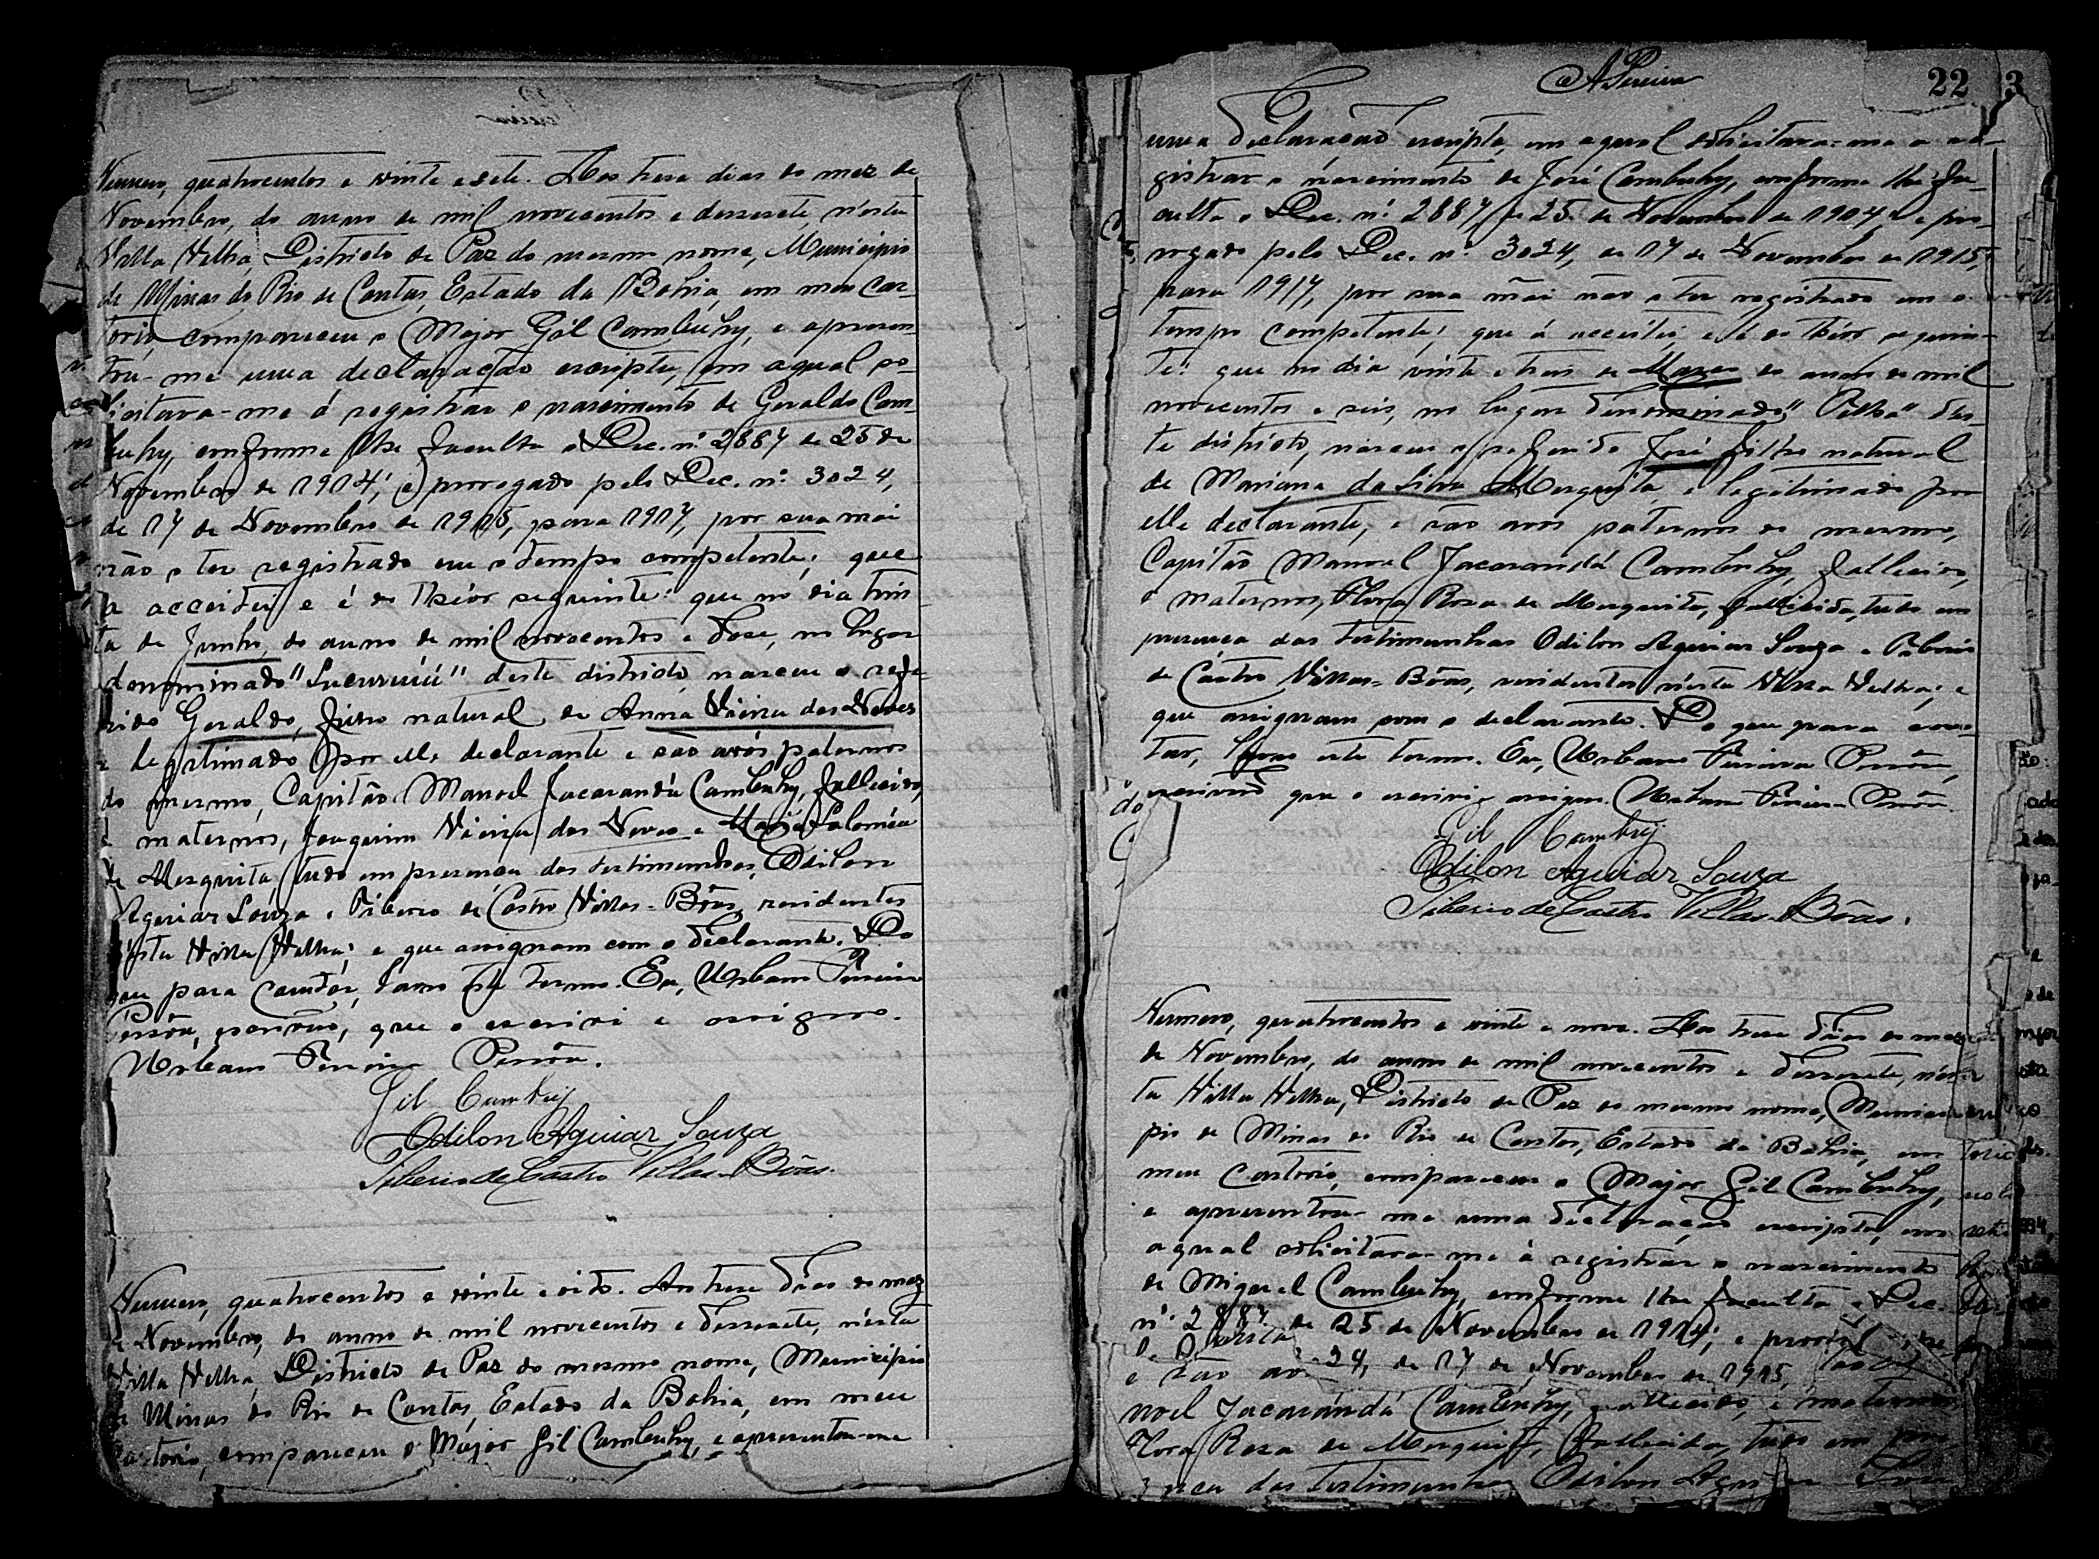 Numero, quatrocentos e vinte e sete. Aos treze dias do mez de
Novembro, do anno de mil novecentos e dezesete, n'esta
Villa Velha, Districto de Paz do mesmo nome, Municipio
de Minas do Rio de Contas, Estado da Bahia, em meu Car-
torio compareceu o Major Gil Cambuhy, e apresen-
tou-me uma declaração escripta, em a qual so-
licitava-me á registrar o nascimento de Geraldo Cam-
buhy, conforme lhe faculta o Dec. nº 2887 de 25 de
Novembro de 1914; e prorogado pelo Dec. nº 3024,
de 17 de Novembro de 1915, para 1917, por sua mãi
não o ter registrado em o tempo competente; que
a acceitei e é do theôr seguinte: que no dia trin-
ta de Junho, do anno de mil novecentos e doze, no lugar
denominado "Sucuruiú" deste districto, nasceu o refe-
rido Geraldo, filho natural de Anna Vieira das Neves
e legitimado por elle declarante e são avós paternos
do mesmo, Capitão Manoel Jacarandá Cambuhy, fallecido,
e maternos, Joaquim Vieira das Neves e Maria Saloméa
de Mesquita, tudo em presença das testimunhas, Odilon
Aguiar Souza e Tiberio de Castro Villas-Bôas, residentes
n'esta Villa Velha; e que assignam com o declarante. Do
que para constar, lavro este termo. Eu, Urbano Pereira
Perrôa, escrivão, que o escrivi e assigno.
Urbano Pereira Perrôa.
Gil Cambuy
Odilon Aguiar Souza
Tiberio de Castro Villas-Bôas.
Numero, quatrocentos e vinte e oito. Aos treze dias do mez
de Novembro, do anno de mil novecentos e dezesete, n'esta
Villa Velha, Districto de Paz do mesmo nome, Municipio
de Minas do Rio de Contas, Estado da Bahia, em meu
Cartorio, compareceu o Major Gil Cambuhy, e apresentou-me
APereira
22 3
uma declaração escripta, em a qual solicitava-me a re-
gistrar o nascimento de José Cambuhy, conforme lhe fa-
culta o Dec. nº 2887 de 25 de Novembro de 1914, e pro-
rogado pelo Dec. nº 3024, de 17 de Novembro de 1915,
para 1917, por sua mãi não o ter registrado em o
tempo competente; que á acceitei, e é do theôr seguin-
te: que no dia vinte e tres de Março do anno de mil
novecentos e seis, no lugar denominado "Pilha" des-
te districto, nasceu o referido José filho natural
de Mariana da Silva Mesquita, e legitimado por
elle declarante, e são avos paternos do mesmo,
Capitão Manoel Jacarandá Cambuhy, fallecido,
e maternos, Flora Rosa de Mesquita, fallecida, tudo em
presença das testimunhas Odilon Aguiar Souza e Tiberio
de Castro Villas-Bôas, residentes n'esta Villa Velha; e
que assignam com o declarante. Do que para cons-
tar, lavro este termo. Eu, Urbano Pereira Perrôa,
escrivão que o escrivi e assigno. Urbano Pereira Perrôa
Gil Cambuy
Odilon Aguiar Souza
Tiberio de Castro Villas-Bôas.
Numero, quatrocentos e vinte e nove. Aos treze dias do mez
de Novembro, do anno de mil novecentos e dezesete, n'es-
ta Villa Velha, Districto de Paz do mesmo nome, Munici-
pio de Minas do Rio de Contas, Estado da Bahia, em
meu Cartorio, compareceu o Major Gil Cambuhy,
e apresentou-me uma declaração escripta, em
a qual solicitava-me á registrar o nascimento
de Miguel Cambuhy, conforme lhe faculta o Dec.
nº 2887 de 25 de Novembro de 1914; e
e são avo 24, de 17 de Novembro de 1915,
noel Jacarandá Cambuhy, fallecido, e maternos
Flora Rosa de Mesquita, fallecida, tudo em
das testimunhas Odilon Aguiar